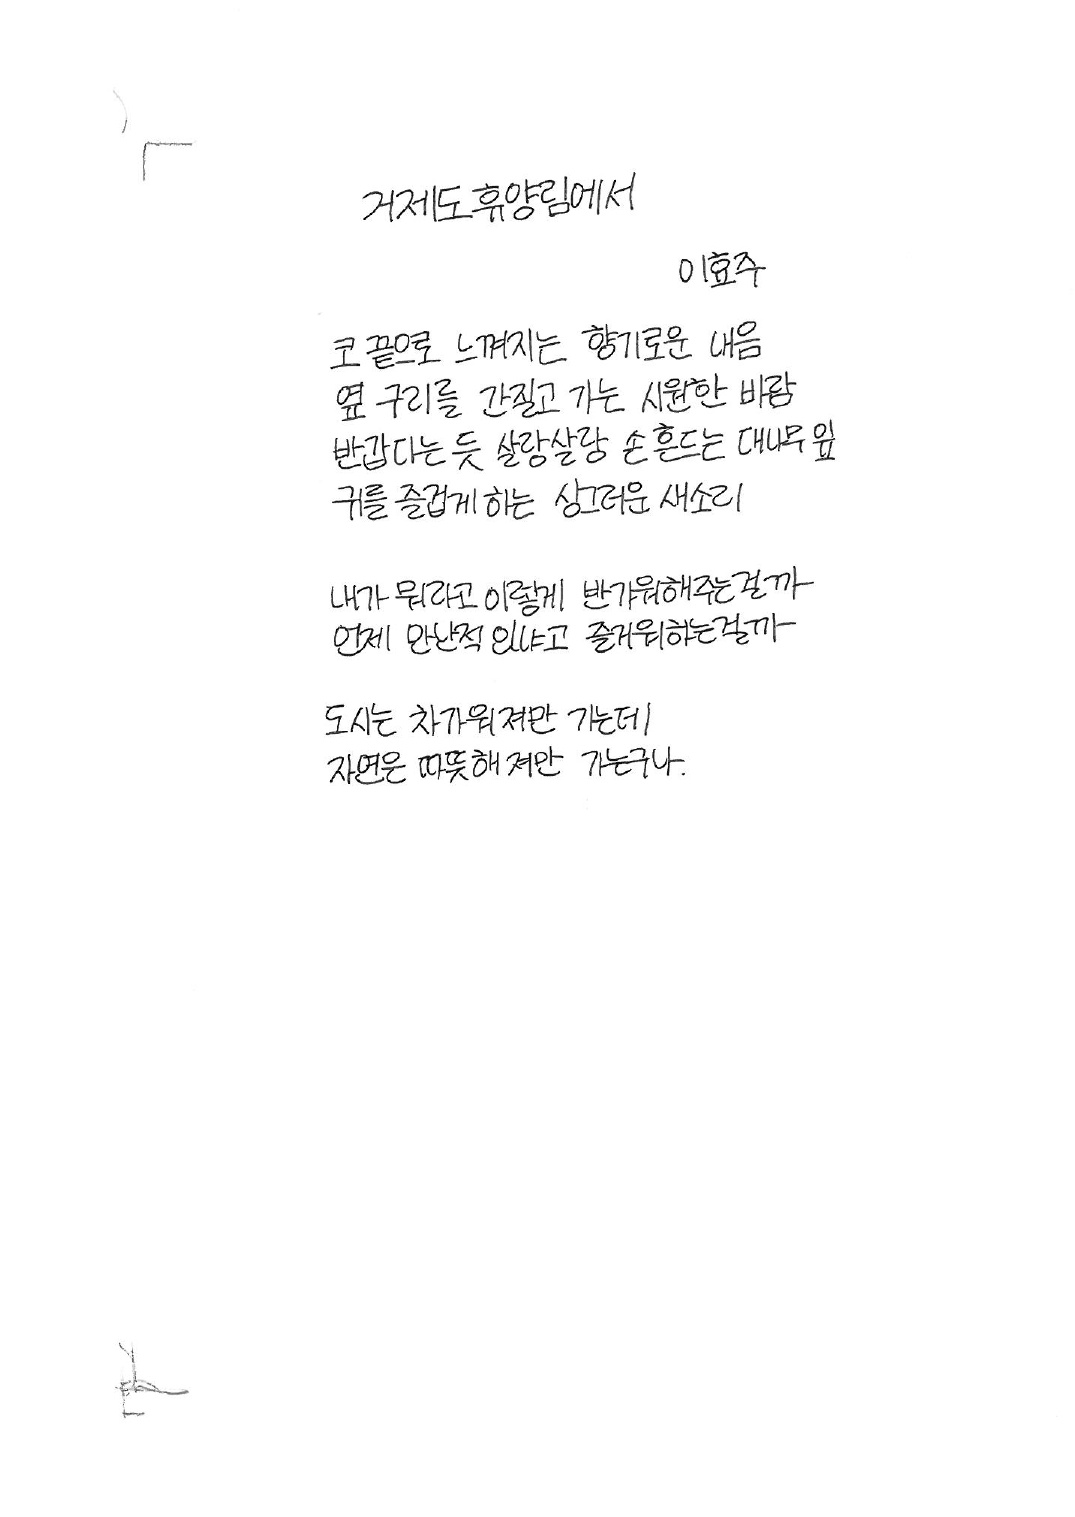 거제도 휴양림에서
이효주
코 끝으로 느껴지는 향기로운 내음
옆 구리를 간질고 가는 시원한 바람
반갑다는 듯 살랑살랑 손 흔드는 대나무 잎
귀를 즐겁게 하는 싱그러운 새소리
내가 뭐라고 이렇게 반가워해주는걸까
언제 만난적 있냐고 즐거워하는걸까
도시는 차가워져만 가는데
자연은 따뜻해져만 가는구나.